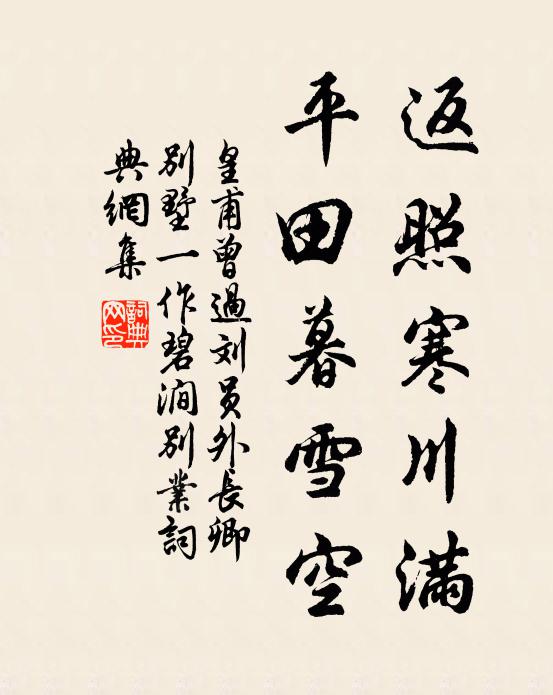 返照寒川满
平田暮雪空
皇甫曾過刘员外長卿
别墅一作碧澗别業詞
典網集
詞典网印